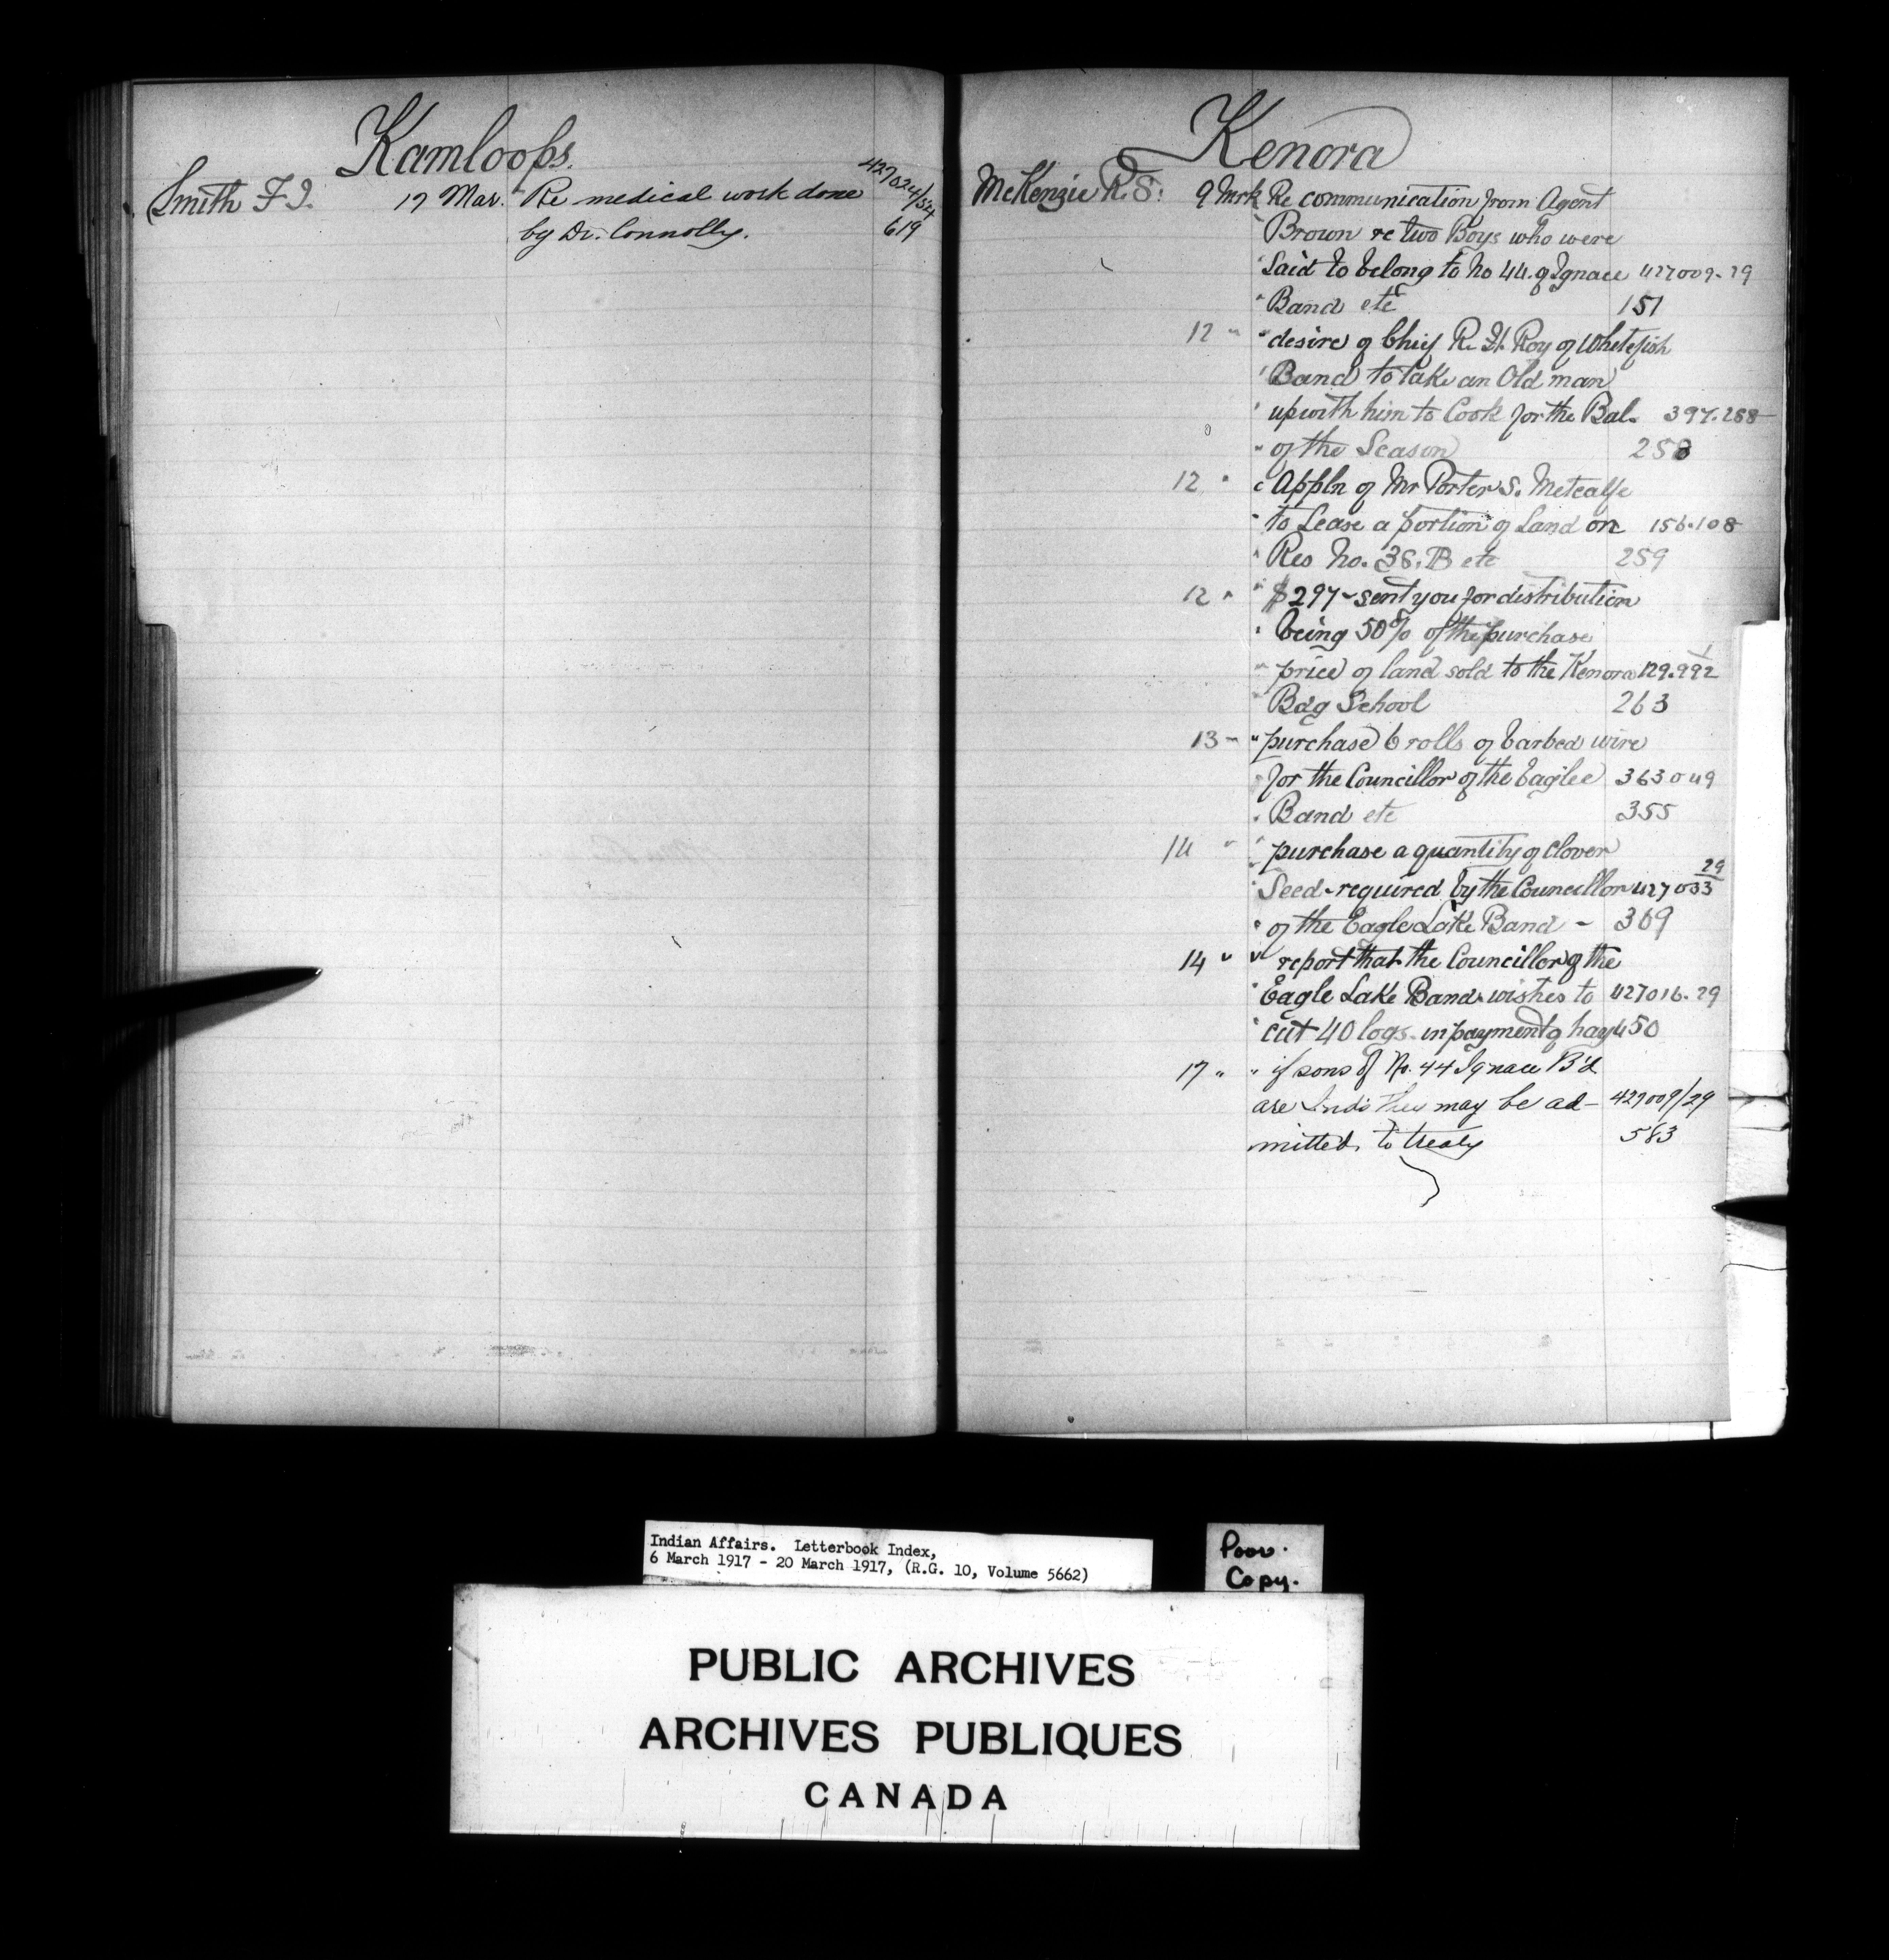 Kamloops.
Smith F. J. 17 Mar. Re medical work done 427024/54
by Dr. Connolly. 619
Kenora
McKenzie R. S. 9 Mrk Re communication from Agent
" Brown re two Boys who were
" Said to belong to No 44. of Ignace 427009-29
" Band etc 151
12 " " desire of Chief R. H. Roy of Whitefish
" Band to take an Old man
" up with him to Cook for the Bal. 397.288
" of the Season 258
12 " " Appln of Mr Porter S. Metcalfe
" to Lease a portion of Land on 156.108
" Res No. 38. B etc 259
12 " " $297 - sent you for distribution
" being 50% of the purchase
" price of land sold to the Kenora 129.992 1
" Bdg School 263
13 " " purchase 6 rolls of barbed wire
" for the Councillor of the Eaglee 363049
" Band etc 355
14 " " purchase a quantity of clover
" Seed - required by the Councillor 427033 29
" of the Eagle Lake Band - 369
14 " " report that the Councillor of the
" Eagle Lake Band wishes to 427016-29
" cut 40 logs in payment of hay 450
17 " " if sons of No. 44 Ignace B'd
are Inds they may be ad- 427009/29
mitted to treaty 583
Indian Affairs. Letterbook Index,
6 March 1917 - 20 March 1917, (R.G. 10, Volume 5662)
Poor.
Copy.
PUBLIC ARCHIVES
ARCHIVES PUBLIQUES
CANADA